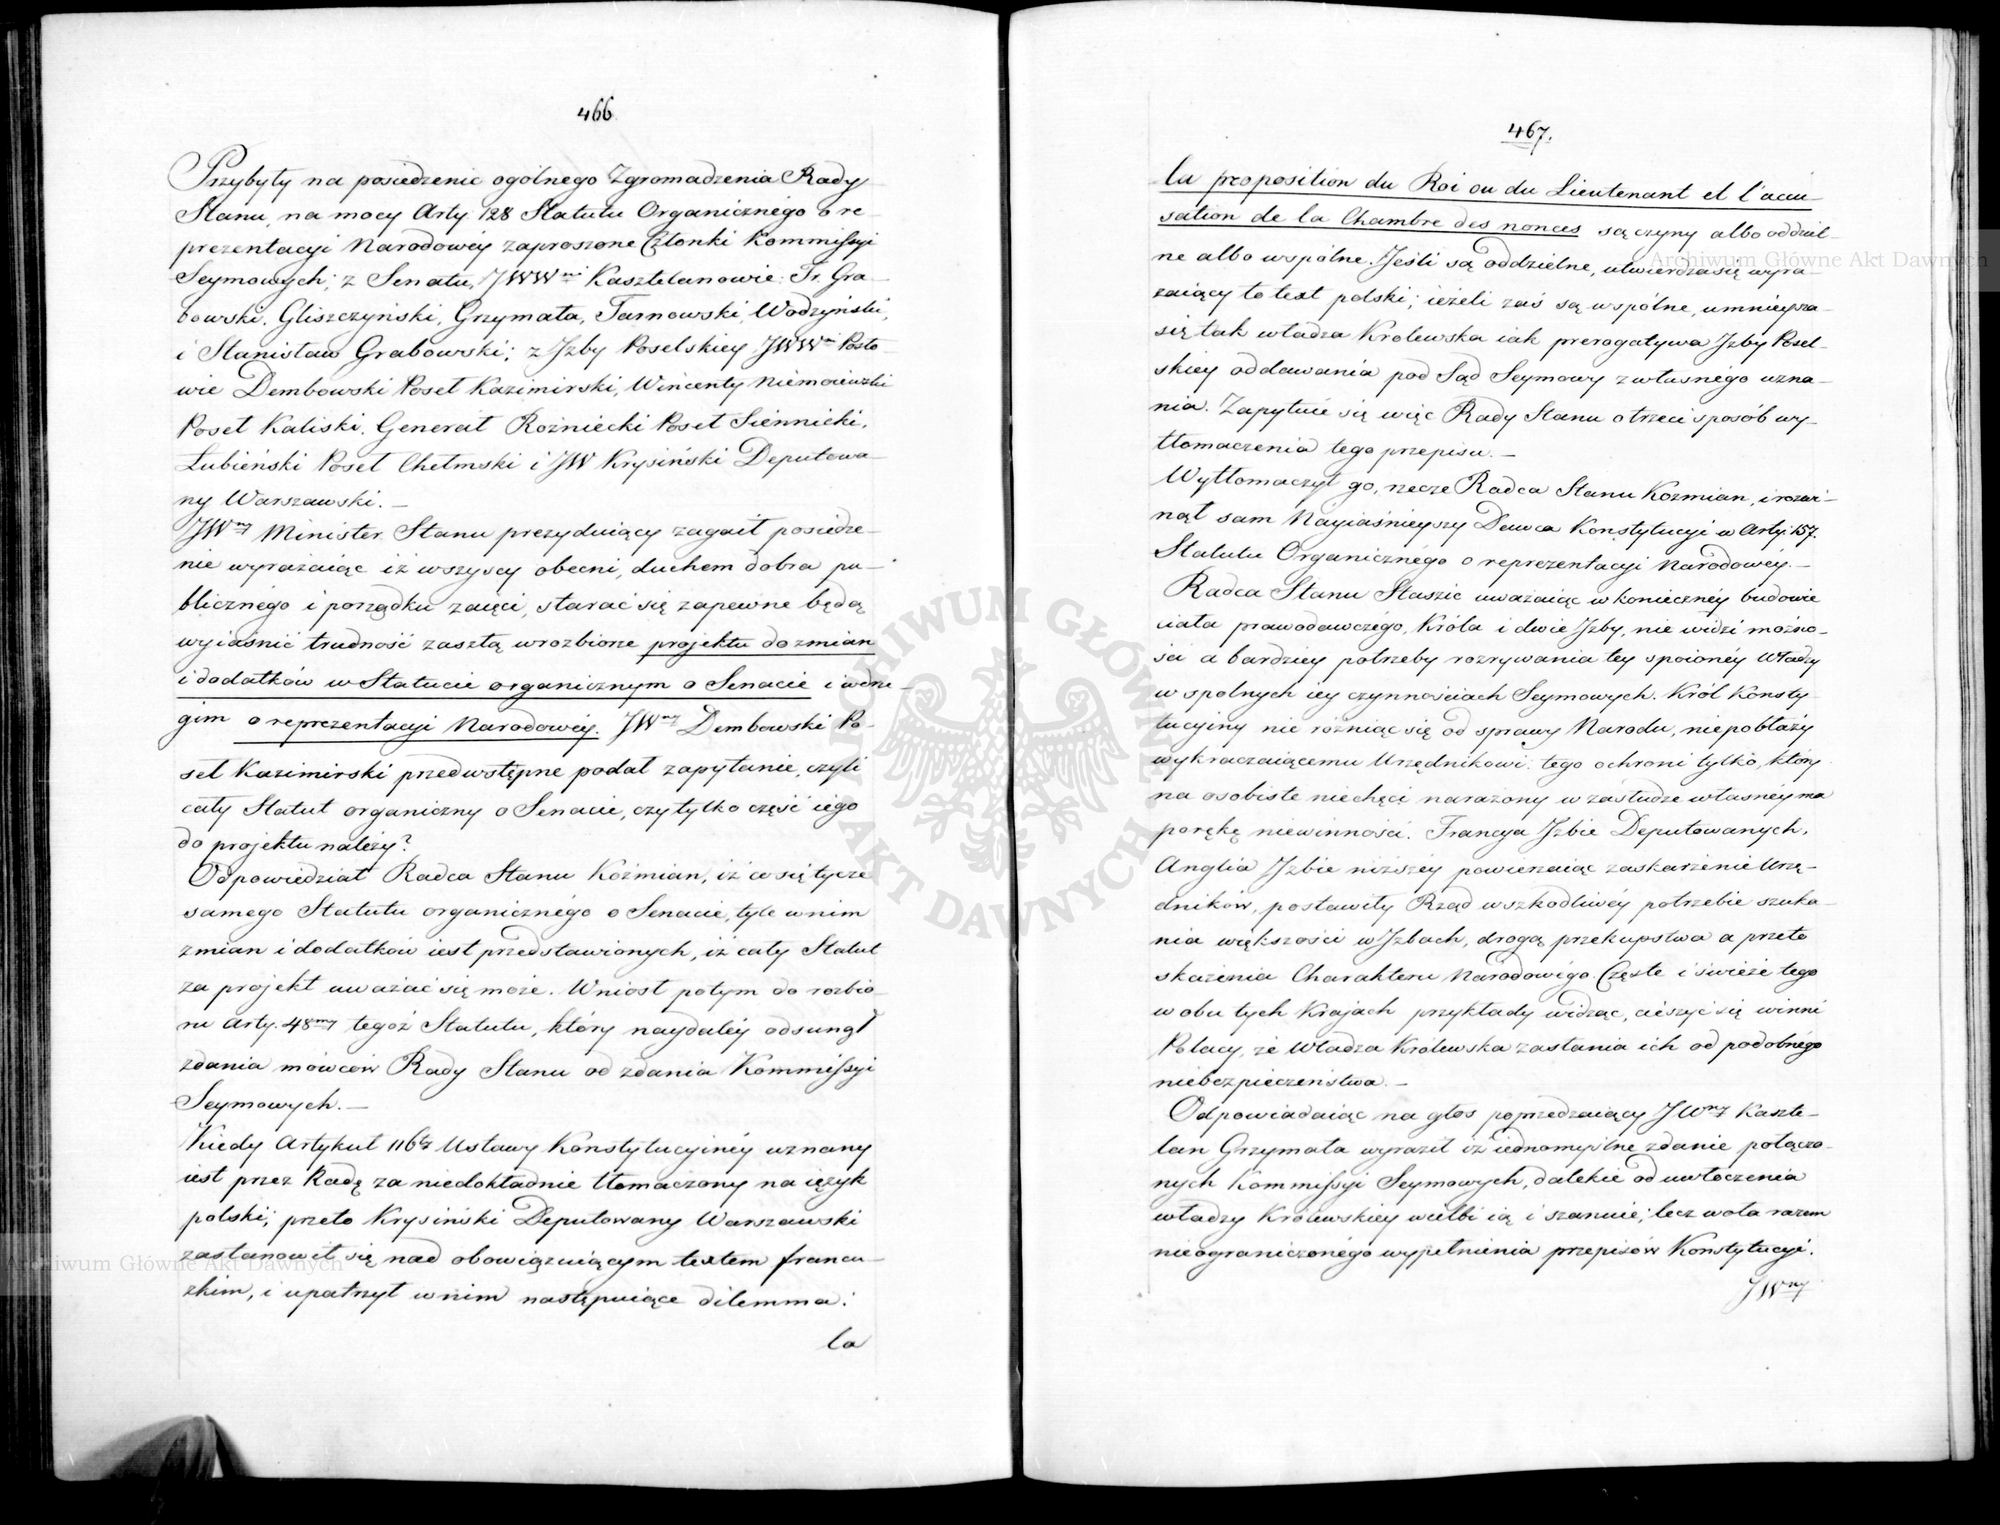 466
Przybyły na posiedzenie ogólnego Zgromadzenia Rady
Stanu, na mocy Arty. 128 Statutu Organicznégo o re-
prezentacyi Narodowéy zaproszone Członki Kommissyi
Seymowych; z Senatu, JWWni Kasztelanowie: Fr. Gra-
bowski, Gliszczyński, Grzymała, Tarnowski, Wodzyński,
i Stanisław Grabowski; z Izby Poselskiey JWWni Posło-
wie Dembowski Poseł Kazimirski, Wincenty Niemoiewski
Poseł Kaliski, Generał Rożniecki Poseł Siennicki,
Łubieński Poseł Chełmski i JW Krysiński Deputowa-
ny Warszawski. —
JWny Minister Stanu prezyduiący zagaił posiedze-
nie wyrażaiąc iż wszyscy obecni, duchem dobra pu-
blicznégo i porządku zaięci, starać się zapewne będą
wyiaśnić trudność zaszłą w rozbiorze projektu do zmian
i dodatków w Statucie organicznym o Senacie i w dru-
gim o reprezentacyi Narodowéy. JWny Dembowski Po-
seł Kazimirski przedwstępne podał zapytanie, czyli
cały Statut organiczny o Senacie, czy tylko część iego
do projektu należy?
Odpowiedział Radca Stanu Koźmian, iż co się tycze
samego Statutu organicznégo o Senacie, tyle w nim
zmian i dodatków iest przedstawionych, iż cały Statut
za projekt uważać się może. Wniósł potym do rozbio-
ru Arty. 48my tegoż Statutu, który naydaléy odsunął
zdania mówców Rady Stanu od zdania Kommissyi
Seymowych. —
Kiedy Artykuł 116ty Ustawy Konstytucyinéy uznany
iest przez Radę za niedokładnie tłomaczony na ięzyk
polski; przeto Krysiński Deputowany Warszawski
zastanowił się nad obowiązuiącym textem francu-
zkim, i upatrzył w nim następuiące dilemma:
la
467.
la proposition du Roi ou du Lieutenant et l'accu-
sation de la Chambre des nonces są czyny albo oddziel-
ne albo wspólne. Jeśli są oddzielne, utwierdza się wyra-
zaiący to text polski; ieżeli zaś są wspólne, umnieysza
się tak władza Królewska iak prerogatywa Izby Posel-
skiey oddawania pod Sąd Seymowy z własnégo uzna-
nia. Zapytuie się więc Rady Stanu o trzeci sposób wy-
tłomaczenia tego przepisu. —
Wytłomaczył go, rzecze Radca Stanu Koźmian, i rozwi-
nął sam Nayiaśnieyszy Dawca Konstytucyi w Arty. 157.
Statutu Organicznégo o reprezentacyi Narodowéy. —
Radca Stanu Staszic uważaiąc w koniecznéy budowie
ciała prawodawczégo, Króla i dwie Izby, nie widzi możno-
ści a bardziey potrzeby rozrywania tey spoionéy władzy
w spólnych iey czynnościach Seymowych. Król Konsty-
tucyiny nie różniąc się od sprawy Narodu, nie pobłaży
wykraczaiącemu Urzędnikowi: tego ochroni tylko, który
na osobiste niechęci narażony w zasłudze własnéy ma
porękę niewinności. Francya Izbie Deputowanych,
Anglia Izbie niższéy powierzaiąc zaskarżenie Urzę-
dników, postawiły Rząd w szkodliwéy potrzebie szuka-
nia większości w Izbach, drogą przekupstwa a przeto
skażenia Charakteru Narodowégo. Częste i świeże tego
w obu tych Krajach przykłady widząc, cieszyć się winni
Polacy, że Władza Królewska zasłania ich od podobnégo
niebezpieczeństwa. —
Odpowiadaiąc na głos poprzedzaiący JWny Kaszte-
lan Grzymała wyraził iż iednomyślne zdanie połączo-
nych Kommissyi Seymowych, dalekie od uwłoczenia
władzy Królewskiey wielbi ią i szanuie; lecz woła razem
nieograniczonégo wypełnienia przepisów Konstytucyi.
JWny
Archiwum Główne Akt Dawnych
Archiwum Główne Akt Dawnych
ARCHIWUM GŁÓWNE AKT DAWNYCH